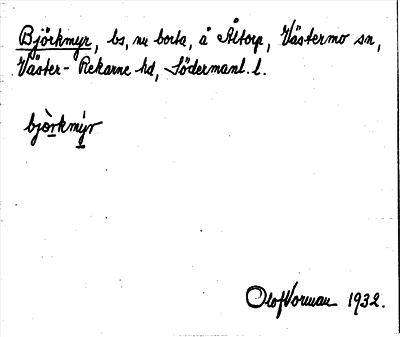 Björkmyr, bs, nu borta, å Åtorp, Västermo sn,
Väster-Rekarne hd, Södermanl. l.
bjòrkmýr
Olof Vorman 1932.